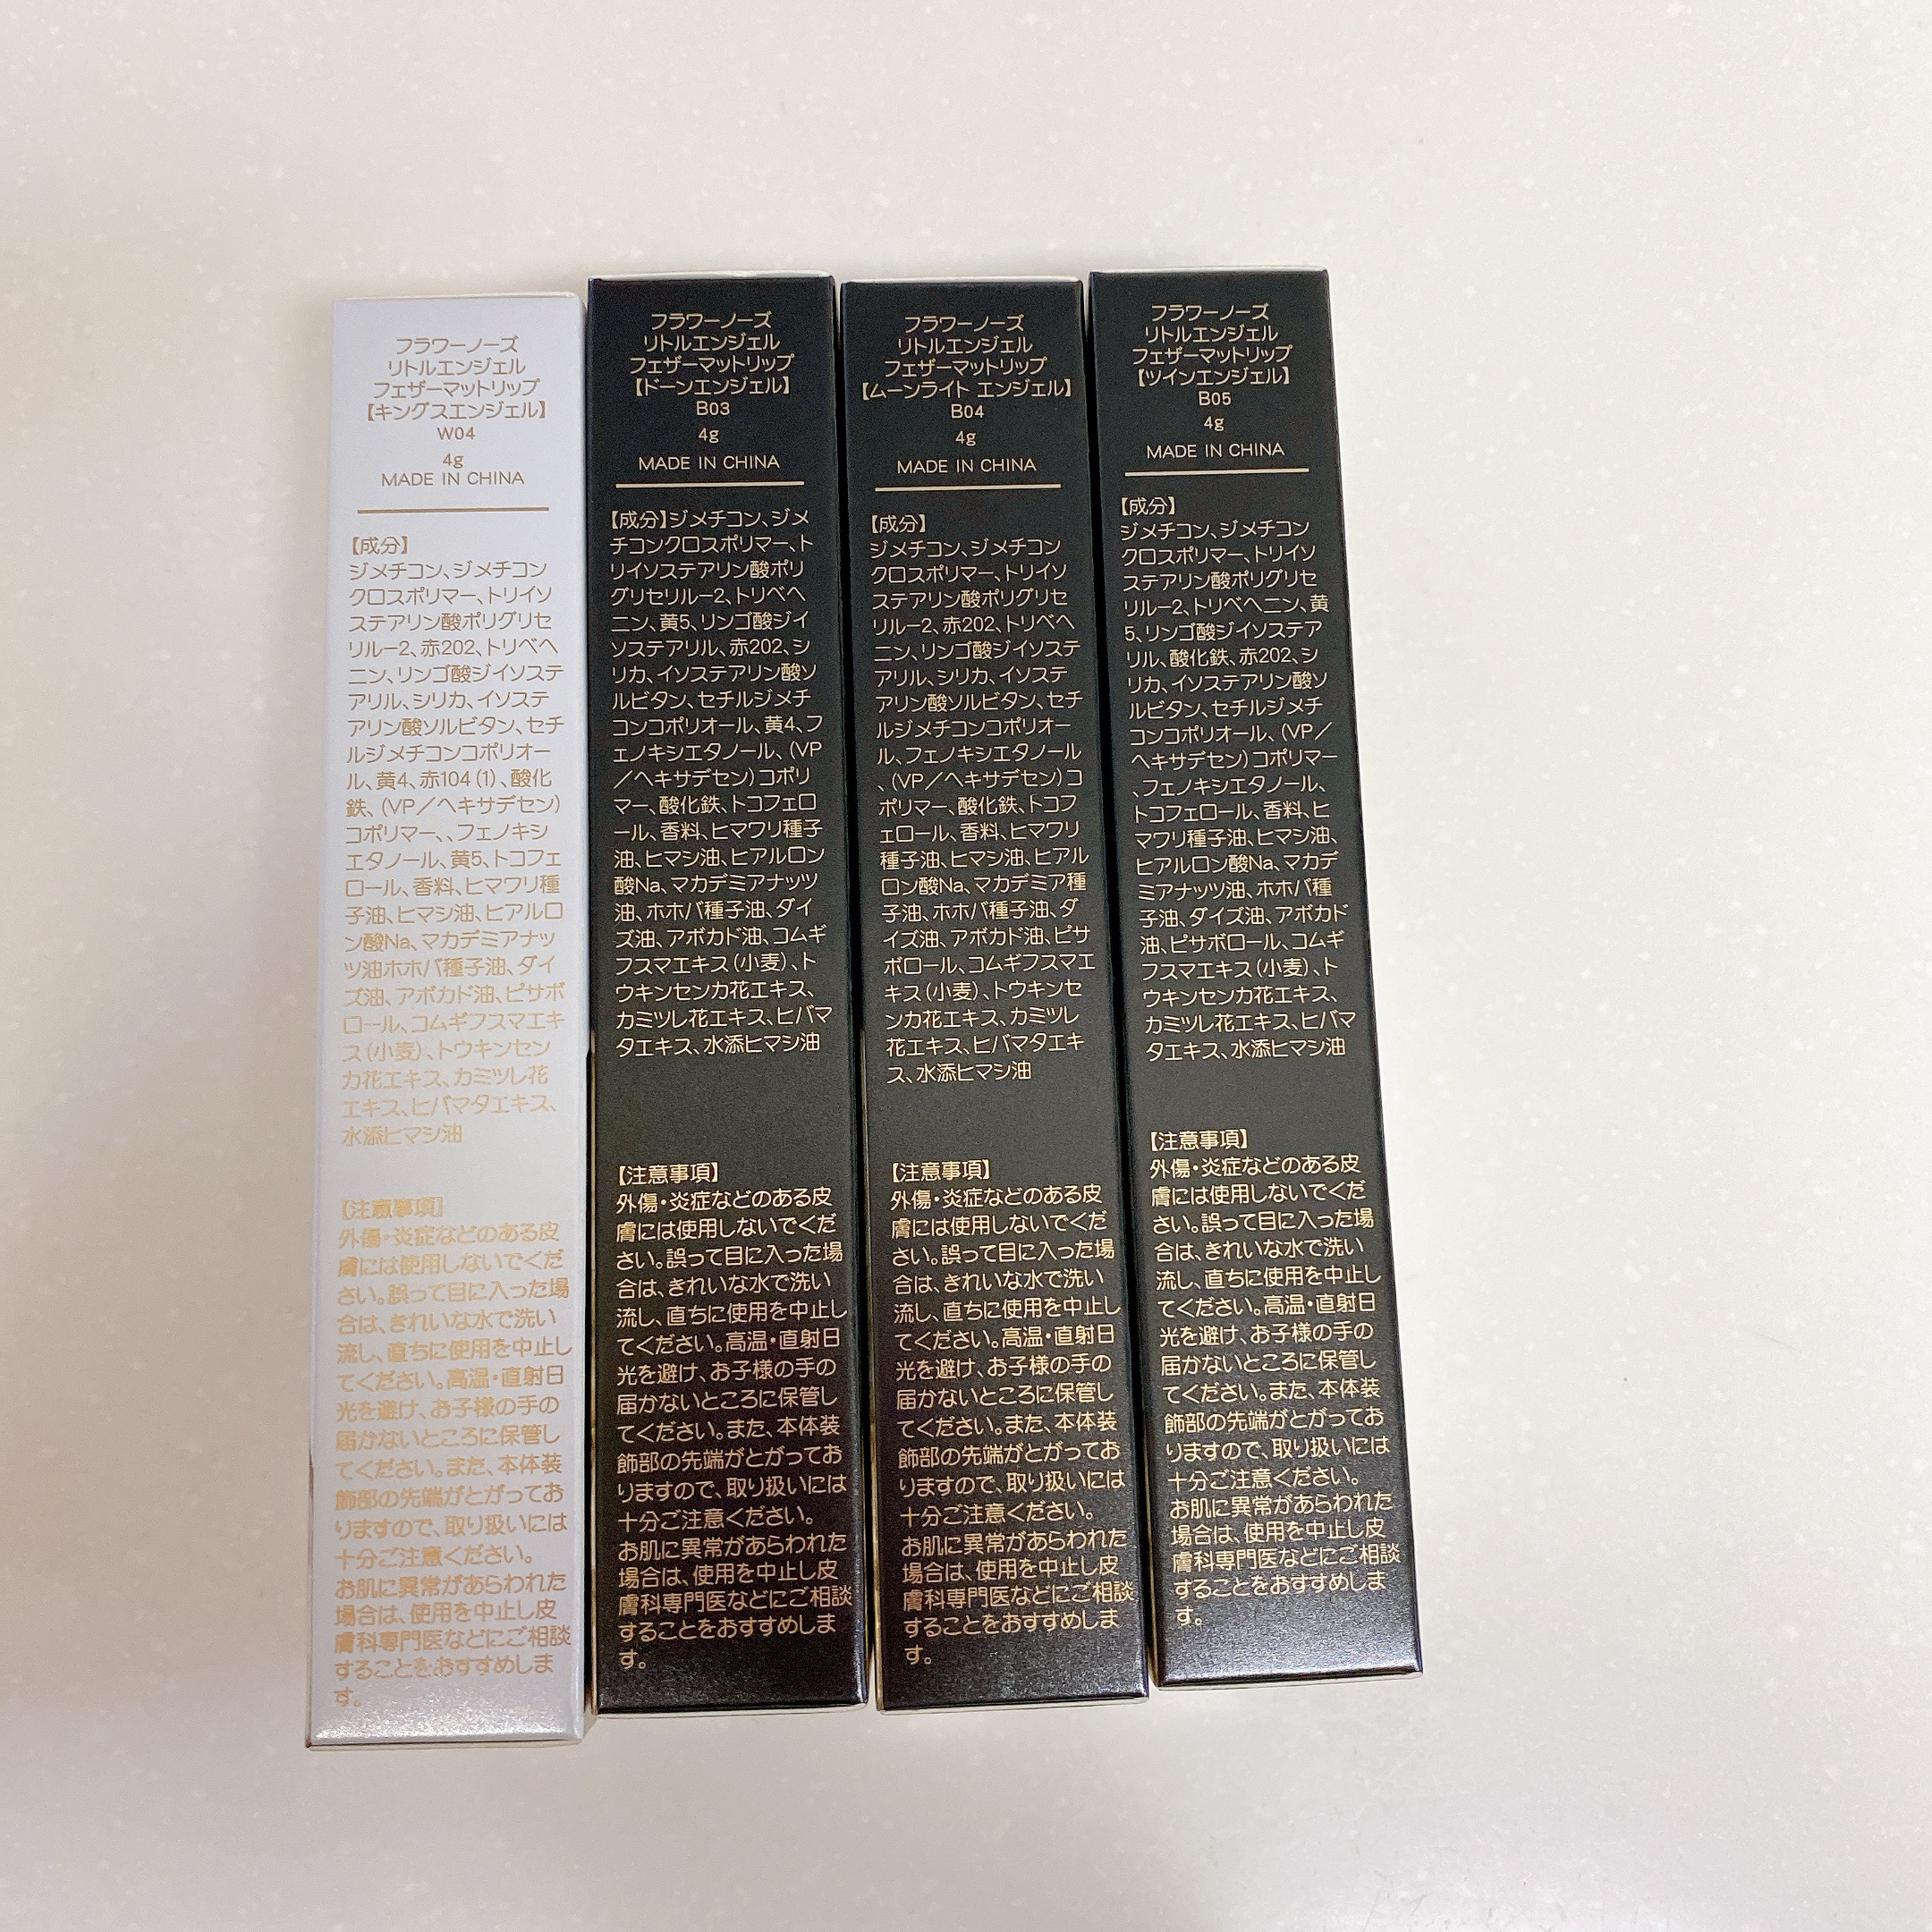 フラワーノーズ
リトルエンジェル
フェザーマットリップ
【キングスエンジェル】
W04
4g
MADE IN CHINA
【成分】
ジメチコン、ジメチコン
クロスポリマー、トリイソ
ステアリン酸ポリグリセ
リルー2、赤202、トリベヘ
ニン、リンゴ酸ジイソステ
アリル、シリカ、イソステ
アリン酸ソルビタン、セチ
ルジメチコンコポリオー
ル、黄4、赤104(1)、酸化
鉄、(VP/ヘキサデセン)
コポリマー、、フェノキシ
エタノール、黄5、トコフェ
ロール、香料、ヒマワリ種
子油、ヒマシ油、ヒアルロ
ン酸Na、マカデミアナッ
ツ油ホホバ種子油、ダイ
ズ油、アボカド油、ビサボ
ロール、コムギフスマエキ
ス(小麦)、トウキンセン
カ花エキス、カミツレ花
エキス、ヒバマタエキス、
水添ヒマシ油
【注意事項】
外傷・炎症などのある皮
膚には使用しないでくだ
さい。誤って目に入った場
合は、きれいな水で洗い
流し、直ちに使用を中止し
てください。高温・直射日
光を避け、お子様の手の
届かないところに保管し
てください。また、本体装
飾部の先端がとがってお
りますので、取り扱いには
十分ご注意ください。
お肌に異常があらわれた
場合は、使用を中止し皮
膚科専門医などにご相談
することをおすすめしま
す。
フラワーノーズ
リトルエンジェル
フェザーマットリップ
【ドーンエンジェル】
B03
4g
MADE IN CHINA
【成分】ジメチコン、ジメ
チコンクロスポリマー、ト
リイソステアリン酸ポリ
グリセリルー2、トリベヘ
ニン、黄5、リンゴ酸ジイ
ソステアリル、赤202、シ
リカ、イソステアリン酸ソ
ルビタン、セチルジメチ
コンコポリオール、黄4、フ
ェノキシエタノール、(VP
/ヘキサデセン)コポリ
マー、酸化鉄、トコフェロ
ール、香料、ヒマワリ種子
油、ヒマシ油、ヒアルロン
酸Na、マカデミアナッツ
油、ホホバ種子油、ダイ
ズ油、アボカド油、コムギ
フスマエキス(小麦)、ト
ウキンセンカ花エキス、
カミツレ花エキス、ヒバマ
タエキス、水添ヒマシ油
【注意事項】
外傷・炎症などのある皮
膚には使用しないでくだ
さい。誤って目に入った場
合は、きれいな水で洗い
流し、直ちに使用を中止し
てください。高温・直射日
光を避け、お子様の手の
届かないところに保管し
てください。また、本体装
飾部の先端がとがってお
りますので、取り扱いには
十分ご注意ください。
お肌に異常があらわれた
場合は、使用を中止し皮
膚科専門医などにご相談
することをおすすめしま
す。
フラワーノーズ
リトルエンジェル
フェザーマットリップ
【ムーンライト エンジェル】
B04
4g
MADE IN CHINA
【成分】
ジメチコン、ジメチコン
クロスポリマー、トリイソ
ステアリン酸ポリグリセ
リルー2、赤202、トリベヘ
ニン、リンゴ酸ジイソステ
アリル、シリカ、イソステ
アリン酸ソルビタン、セチ
ルジメチコンコポリオー
ル、フェノキシエタノール
、(VP/ヘキサデセン)コ
ポリマー、酸化鉄、トコフ
ェロール、香料、ヒマワリ
種子油、ヒマシ油、ヒアル
ロン酸Na、マカデミア種
子油、ホホバ種子油、ダ
イズ油、アボカド油、ビサ
ボロール、コムギフスマエ
キス(小麦)、トウキンセ
ンカ花エキス、カミツレ
花エキス、ヒバマタエキ
ス、水添ヒマシ油
【注意事項】
外傷・炎症などのある皮
膚には使用しないでくだ
さい。誤って目に入った場
合は、きれいな水で洗い
流し、直ちに使用を中止し
てください。高温・直射日
光を避け、お子様の手の
届かないところに保管し
てください。また、本体装
飾部の先端がとがってお
りますので、取り扱いには
十分ご注意ください。
お肌に異常があらわれた
場合は、使用を中止し皮
膚科専門医などにご相談
することをおすすめしま
す。
フラワーノーズ
リトルエンジェル
フェザーマットリップ
【ツインエンジェル】
B05
4g
MADE IN CHINA
【成分】
ジメチコン、ジメチコン
クロスポリマー、トリイソ
ステアリン酸ポリグリセ
リルー2、トリベヘニン、黄
5、リンゴ酸ジイソステア
リル、酸化鉄、赤202、シ
リカ、イソステアリン酸ソ
ルビタン、セチルジメチ
コンコポリオール、(VP/
ヘキサデセン)コポリマー
、フェノキシエタノール、
トコフェロール、香料、ヒ
マワリ種子油、ヒマシ油、
ヒアルロン酸Na、マカデ
ミアナッツ油、ホホバ種
子油、ダイズ油、アボカド
油、ビサボロール、コムギ
フスマエキス(小麦)、ト
ウキンセンカ花エキス、
カミツレ花エキス、ヒバマ
タエキス、水添ヒマシ油
【注意事項】
外傷・炎症などのある皮
膚には使用しないでくだ
さい。誤って目に入った場
合は、きれいな水で洗い
流し、直ちに使用を中止し
てください。高温・直射日
光を避け、お子様の手の
届かないところに保管し
てください。また、本体装
飾部の先端がとがってお
りますので、取り扱いには
十分ご注意ください。
お肌に異常があらわれた
場合は、使用を中止し皮
膚科専門医などにご相談
することをおすすめしま
す。